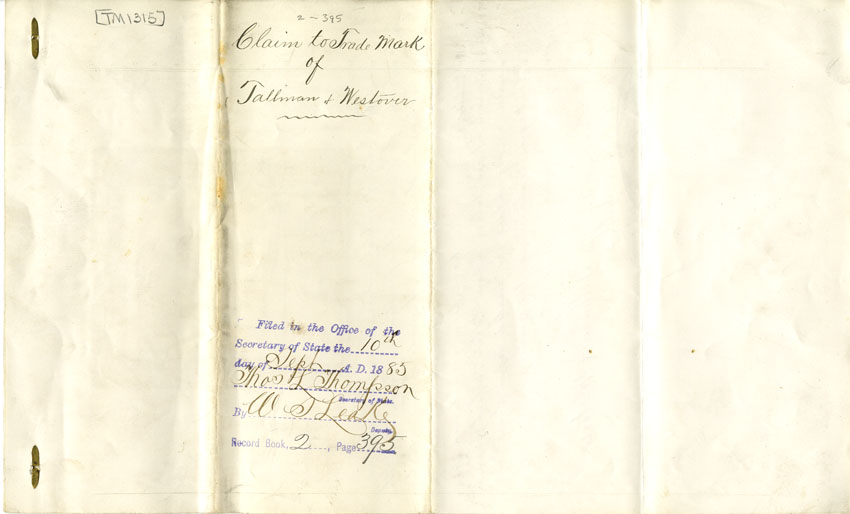 [TM1315]
2-395
Claim to Trade Mark
of
Tallman & Westover
Filed in the Office of the
Secretary of State the 10th
day of Sept A. D. 1885
Thos L Thompson
Secretary of State.
By W T Leake
Deputy
Record Book 2, Page 395